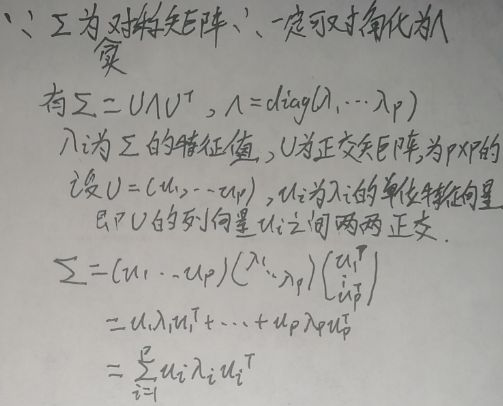 ∵ Σ为实对称矩阵 ∴ 一定可对角化为Λ
有Σ=UΛUᵀ, Λ=diag(λ₁…λp)
λi为Σ的特征值, U为正交矩阵,为p×p的
设U=(u₁,…up), ui为λi的单位特征向量
即U的列向量ui之间两两正交.
Σ=(u₁…up)(λ₁⋱λp)(u₁ᵀ⋮upᵀ)
=u₁λ₁u₁ᵀ+…+upλpupᵀ
=∑ᵢ₌₁ᵖ uiλiuiᵀ